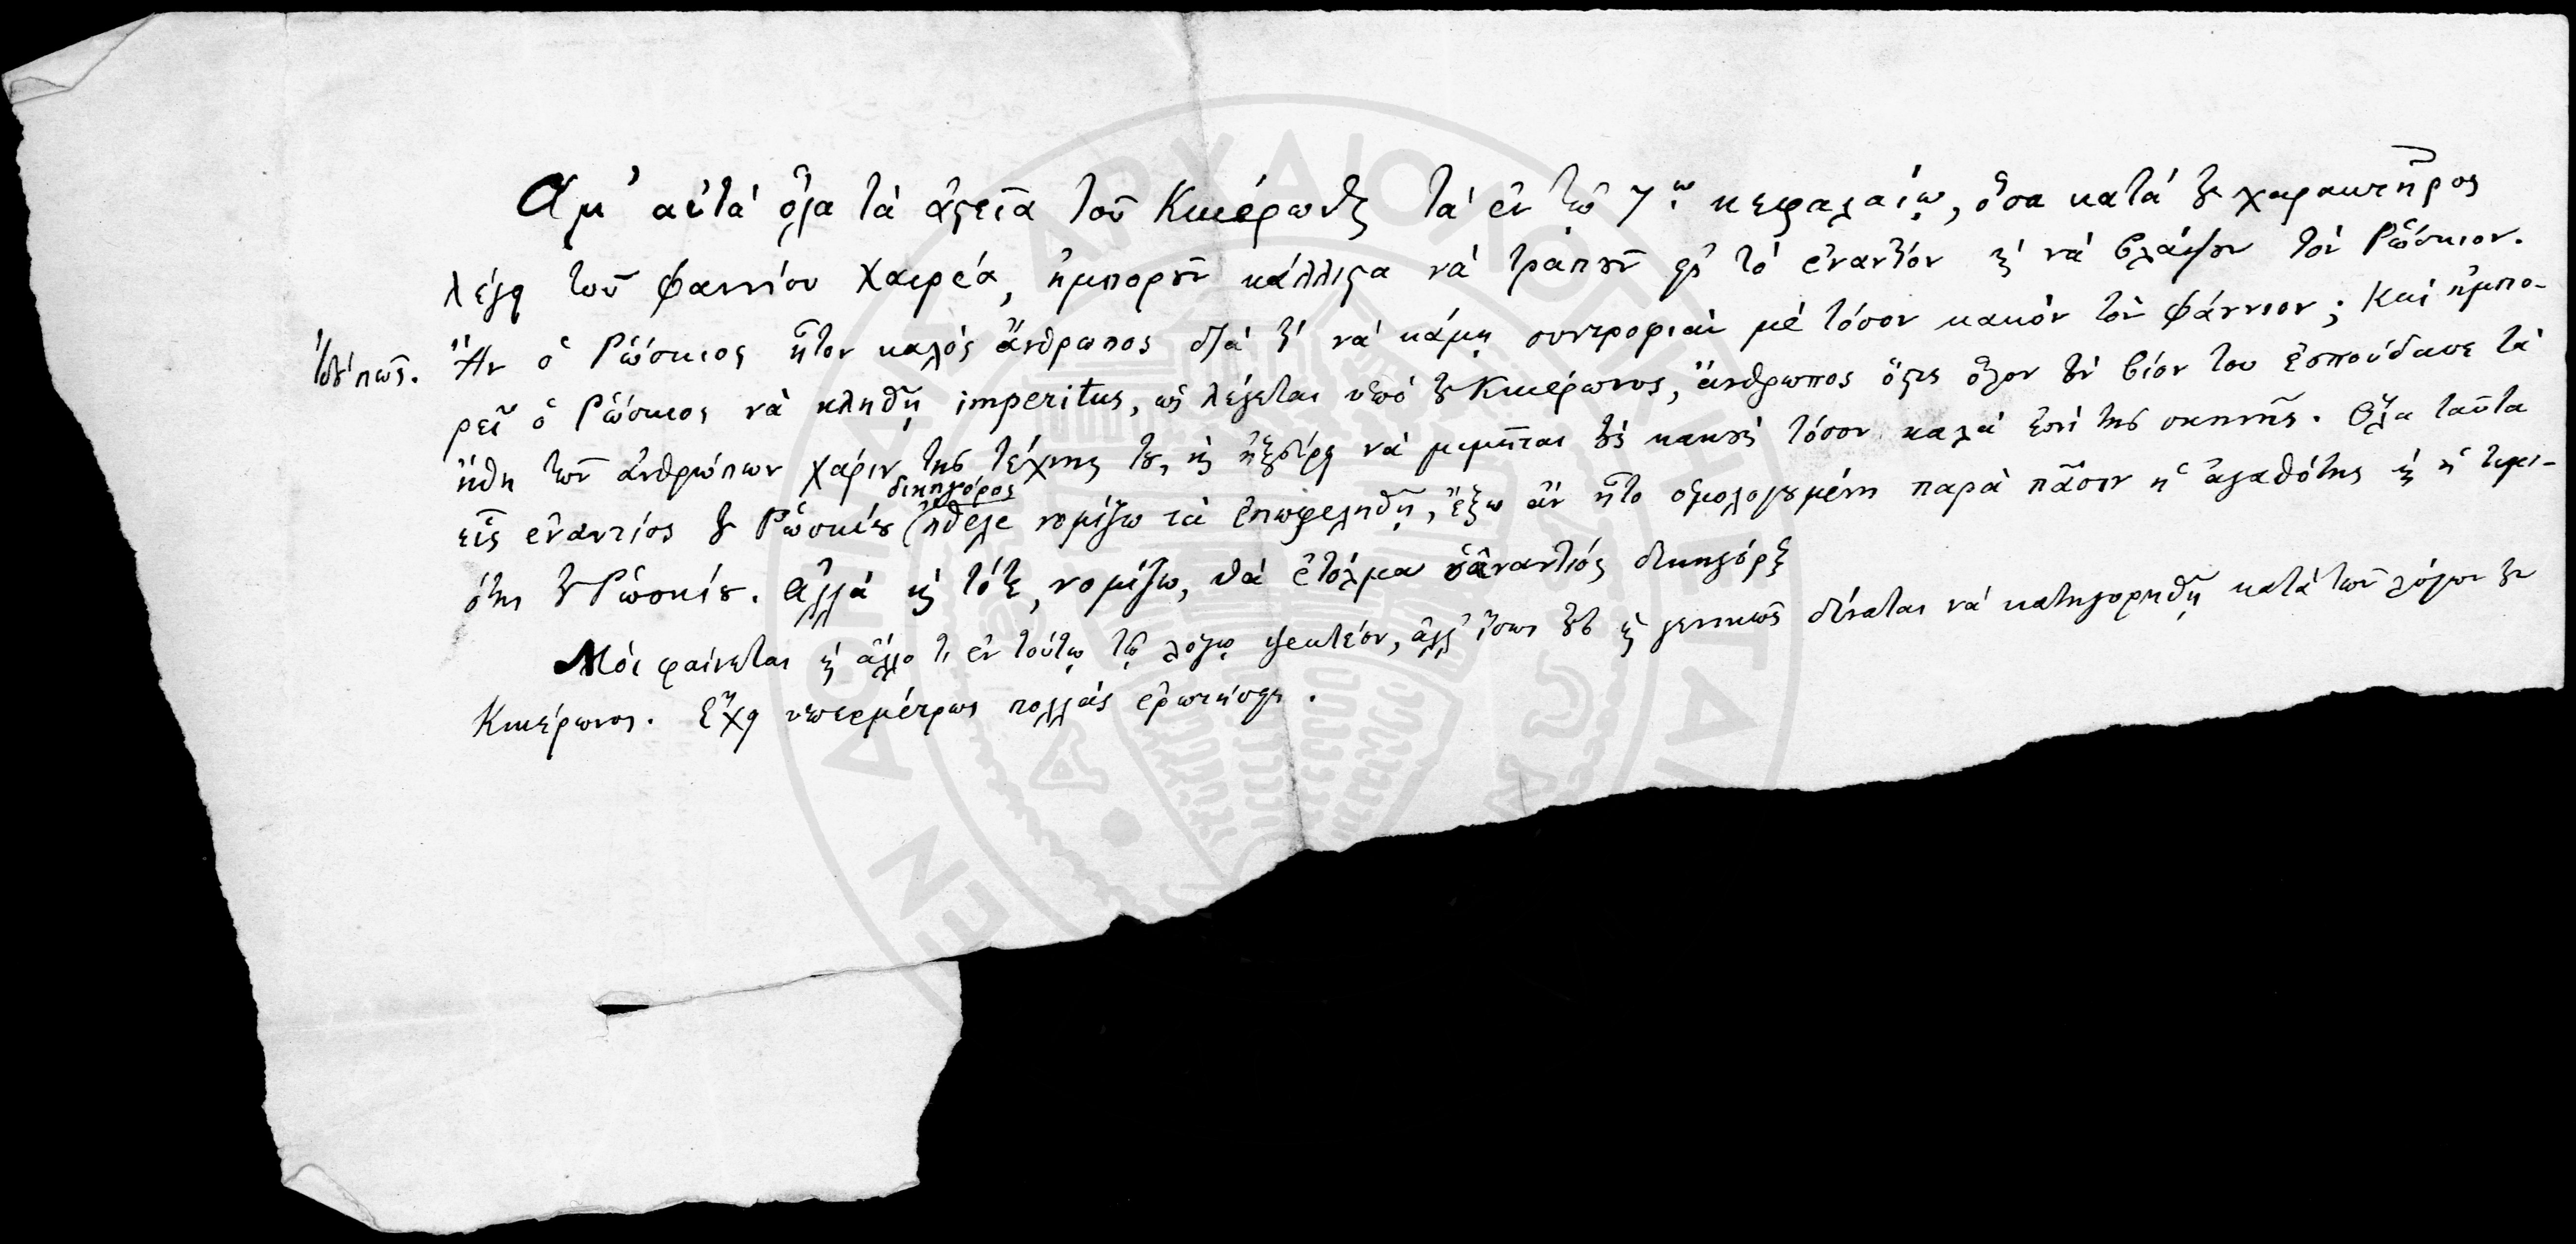 Ἀμ' αὐτὰ ὅλα τὰ ἀστεῖα τοῦ Κικέρωνος τὰ ἐν τῷ 7ῳ κεφαλαίῳ, ὅσα κατὰ τοῦ χαρακτῆρος
λέγει τοῦ Φαννίου Χαιρέα, ἠμποροῦν κάλλιστα νὰ τραποῦν εἰς τὸ ἐναντίον καὶ νὰ βλάψουν τὸν Ῥώσκιον.
Ἰδοὺ πῶς. Ἂν ὁ Ῥώσκιος ἦτον καλὸς ἄνθρωπος διὰ τί νὰ κάμῃ συντροφιὰν μὲ τόσον κακὸν τὸν Φάννιον; Καὶ ἠμπο-
ρεῖ ὁ Ῥώσκιος νὰ κληθῇ imperitus, ὡς λέγεται ὑπὸ τοῦ Κικέρωνος, ἄνθρωπος ὅστις ὅλον τὸν βίον του ἐσπούδασε τὰ
ἤθη τῶν ἀνθρώπων χάριν τῆς τέχνης του, καὶ ἤξευρε νὰ μιμῆται τοὺς κακοὺς τόσον καλὰ ἐπὶ τῆς σκηνῆς. Ὅλα ταῦτα
δικηγόρος
εἷς ἐναντίος τοῦ Ῥωσκίου ἤθελε νομίζω τὰ ἐπωφεληθῇ, ἔξω ἂν ἦτο ὁμολογουμένη παρὰ πᾶσιν ἡ ἀγαθότης καὶ ἡ τιμι-
ότης τοῦ Ῥωσκίου. Ἀλλὰ καὶ τότε, νομίζω, θὰ ἐτόλμα ὁ ἐναντίος δικηγόρος
Μοὶ φαίνεται καὶ ἄλλο τι ἐν τούτῳ τῷ λόγῳ ψεκτέον, ἀλλ' ἴσως τοῦτο καὶ γενικῶς δύναται νὰ κατηγορηθῇ κατὰ τῶν λόγων τοῦ
Κικέρωνος. Ἔχει ὑπερμέτρως πολλὰς ἐρωτήσεις.